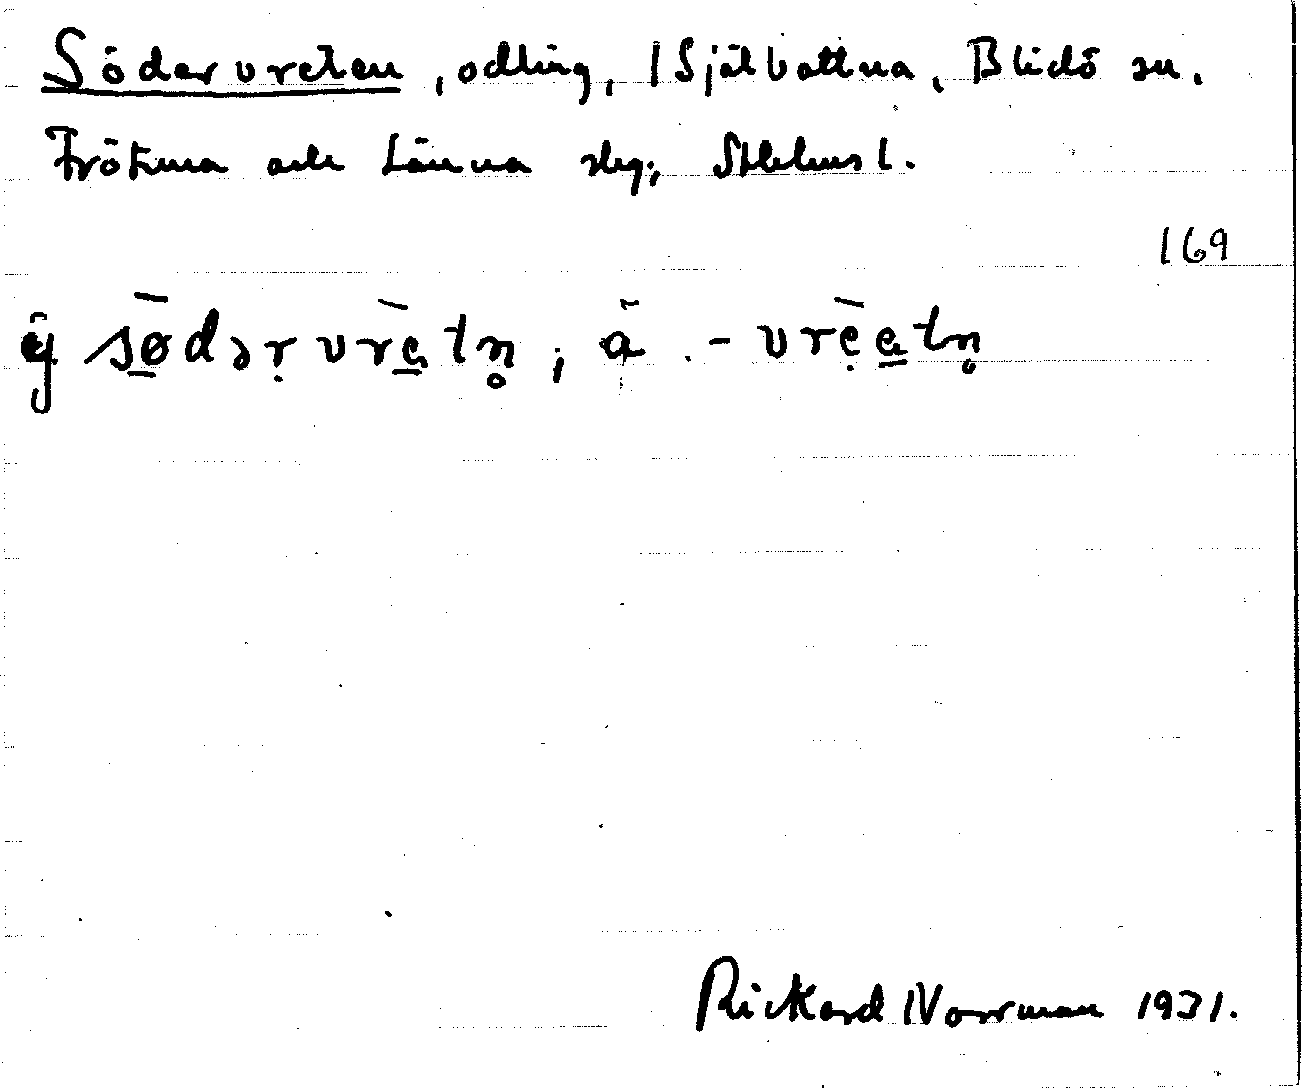 Södervreten, odling, / Själbottna, Blidö sn.
Frötuna och Länna slg; Sthlms l.
169
ÿ sødərvrètn̥, ä .- vrèe̱tn̥
Rickard Norrman 1931.